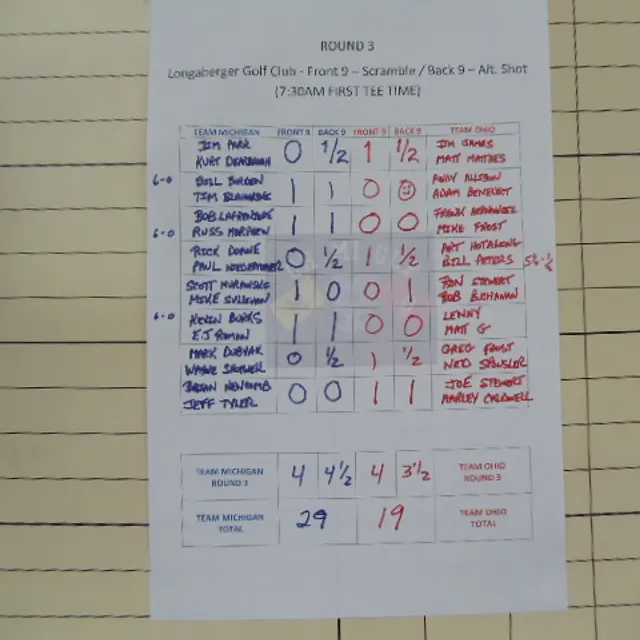 ROUND 3
Longaberger Golf Club - Front 9 – Scramble / Back 9 – Alt. Shot
(7:30AM FIRST TEE TIME)
TEAM MICHIGAN FRONT 9 BACK 9 FRONT 9 BACK 9 TEAM OHIO
JIM PARR 0 1/2 1 1/2 JIM
KURT MATT MATTHES
6-0 BILL BURDEN 1 1 0 ANDY ALLISON
TIM ADAM BENEDICT
BOB 1 1 0 0 FRANK
6-0 RUSS MIKE FROST
RICK DOANE 0 1/2 1 1/2 ART HOTALING
PAUL BILL PETERS 5½-½
SCOTT 1 0 0 1 RON STEWART
MIKE SULLIVAN BOB BUCHANAN
6-0 KEVIN BURKS 1 1 0 0 LENNY
EJ ROMAN MATT G
MARK DUBYAK 0 1/2 1 1/2 GREG FROST
WAYNE NED
BRIAN NEWCOMB 0 0 1 1 JOE STEWART
JEFF TYLER HARLEY CALDWELL
TEAM MICHIGAN ROUND 3 4 4½ 4 3½ TEAM OHIO ROUND 3
TEAM MICHIGAN TOTAL 29 19 TEAM OHIO TOTAL